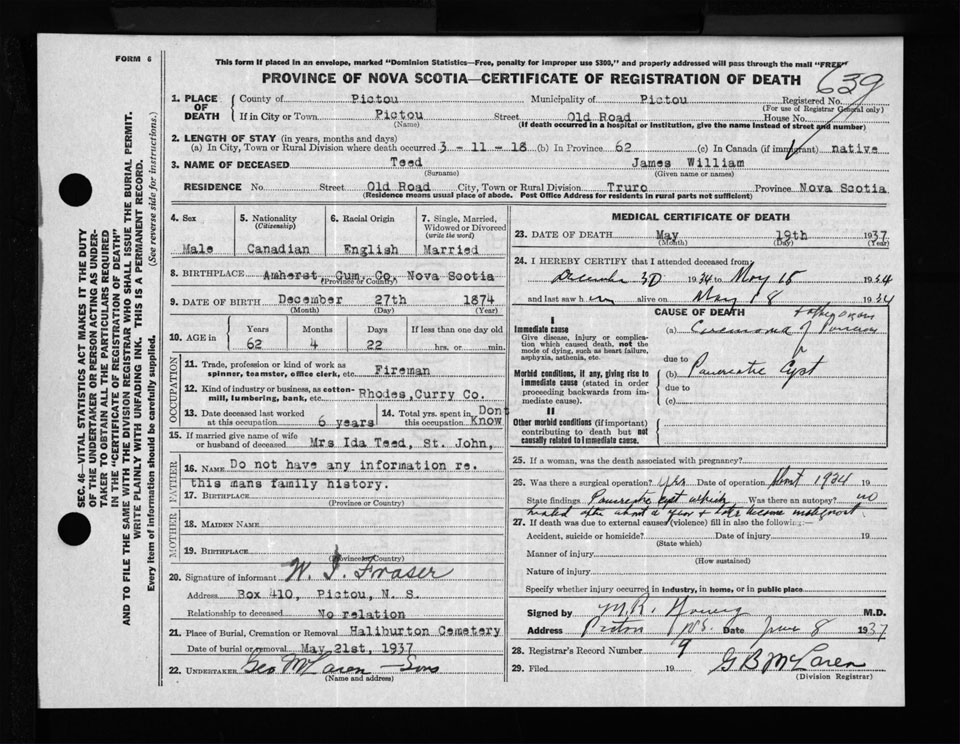 FORM 6
This form if placed in an envelope, marked "Dominion Statistics—Free, penalty for improper use $300," and properly addressed will pass through the mail "FREE"
PROVINCE OF NOVA SCOTIA—CERTIFICATE OF REGISTRATION OF DEATH
639
1. PLACE OF DEATH
County of Pictou Municipality of Pictou Registered No.
(For use of Registrar General only)
If in City or Town Pictou Street Old Road House No.
(Name) (If death occurred in a hospital or institution, give the name instead of street and number)
2. LENGTH OF STAY (in years, months and days)
(a) In City, Town or Rural Division where death occurred 3 - 11 - 18 (b) In Province 62 (c) In Canada (if immigrant) native
3. NAME OF DECEASED Teed James William
(Surname) (Given name or names)
RESIDENCE No. Street Old Road City, Town or Rural Division Truro Province Nova Scotia
(Residence means usual place of abode. Post Office Address for residents in rural parts not sufficient)
4. Sex
Male
5. Nationality
(Citizenship)
Canadian
6. Racial Origin
English
7. Single, Married, Widowed or Divorced
(write the word)
Married
8. BIRTHPLACE Amherst Cum. Co. Nova Scotia
(Province or Country)
9. DATE OF BIRTH December 27th 1874
(Month) (Day) (Year)
10. AGE in
Years Months Days If less than one day old
62 4 22 hrs. or min.
OCCUPATION
11. Trade, profession or kind of work as spinner, teamster, office clerk, etc. Fireman
12. Kind of industry or business, as cotton-mill, lumbering, bank, etc. Rhodes,Curry Co.
13. Date deceased last worked at this occupation 6 years
14. Total yrs. spent in this occupation Dont Know
15. If married give name of wife or husband of deceased Mrs Ida Teed, St. John,
FATHER
16. NAME Do not have any information re.
this mans family history.
17. BIRTHPLACE
(Province or Country)
MOTHER
18. MAIDEN NAME
19. BIRTHPLACE
(Province or Country)
20. Signature of informant W. J. Fraser
Address Box 410, Pictou, N. S.
Relationship to deceased No relation
21. Place of Burial, Cremation or Removal Haliburton Cemetery
Date of burial or removal May 21st, 1937
22. UNDERTAKER Geo McLaren Sons
(Name and address)
MEDICAL CERTIFICATE OF DEATH
23. DATE OF DEATH May 19th 1937
(Month) (Day) (Year)
24. I HEREBY CERTIFY that I attended deceased from
December 30 1934 to May 18 1934
and last saw him alive on May 18 1934
CAUSE OF DEATH
I
Immediate cause
Give disease, injury or complication which caused death, not the mode of dying, such as heart failure, asphyxia, asthenia, etc.
(a) Carcinoma of Pancreas
due to
Morbid conditions, if any, giving rise to immediate cause (stated in order proceeding backwards from immediate cause).
(b) Pancreatic Cyst
due to
(c)
II
Other morbid conditions (if important) contributing to death but not causally related to immediate cause.
25. If a woman, was the death associated with pregnancy?
26. Was there a surgical operation? Yes Date of operation 1934 19
State findings Pancreatic cyst which Was there an autopsy? no
healed after about a year + later became malignant.
27. If death was due to external causes (violence) fill in also the following:—
Accident, suicide or homicide? Date of injury 19
(State which)
Manner of injury
(How sustained)
Nature of injury
Specify whether injury occurred in industry, in home, or in public place
Signed by M.R. Young M.D.
Address Pictou N.S. Date June 8 1937
28. Registrar's Record Number 9
29. Filed 19 G B McLaren
(Division Registrar)
SEC. 46—VITAL STATISTICS ACT MAKES IT THE DUTY
OF THE UNDERTAKER OR PERSON ACTING AS UNDER-
TAKER TO OBTAIN ALL THE PARTICULARS REQUIRED
IN THE "CERTIFICATE OF REGISTRATION OF DEATH"
AND TO FILE THE SAME WITH THE DIVISION REGISTRAR WHO SHALL ISSUE THE BURIAL PERMIT.
WRITE PLAINLY WITH UNFADING INK. THIS IS A PERMANENT RECORD.
Every item of information should be carefully supplied. (See reverse side for instructions.)